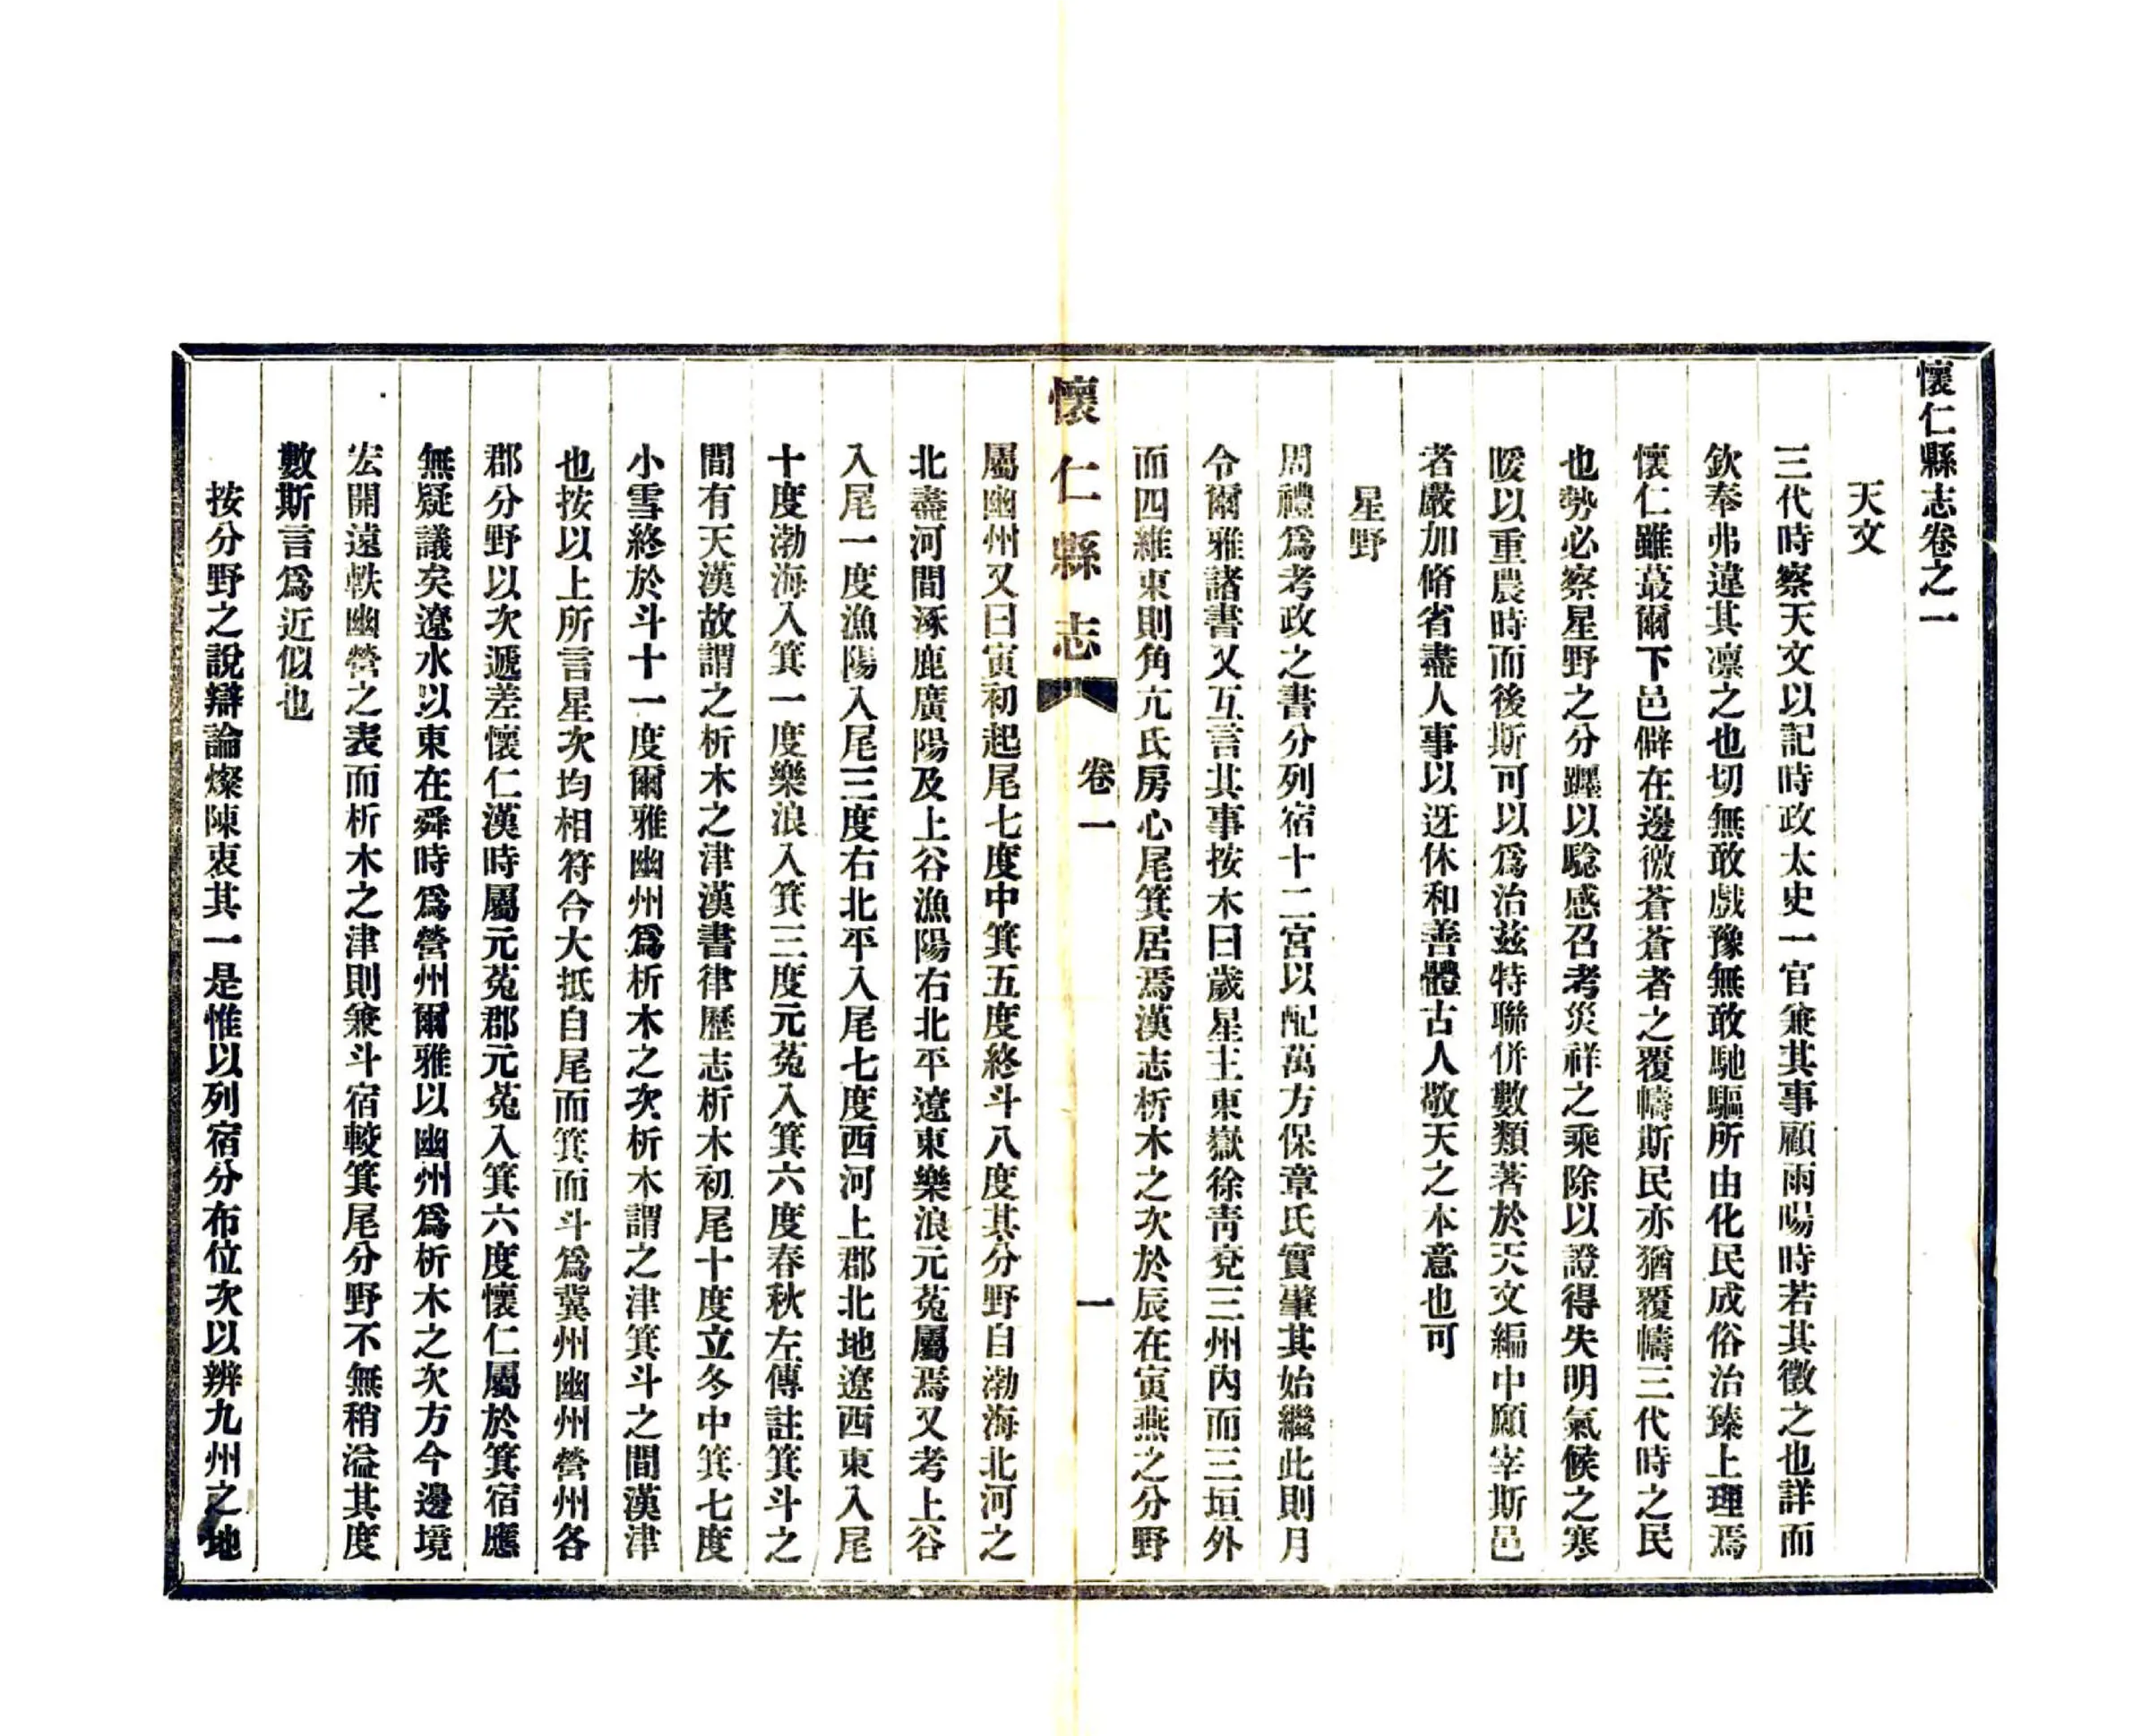 懷仁縣志卷之一
天文
三代時察天文以記時政太史一官兼其事顧雨暘時若其徵之也詳而
欽奉弗違其凛之也切無敢戲豫無敢馳驅所由化民成俗治臻上理焉
懷仁雖蕞爾下邑僻在邊徼蒼蒼者之覆幬斯民亦猶覆幬三代時之民
也勢必察星野之分躔以騐感召考災祥之乘除以證得失明氣候之寒
暖以重農時而後斯可以爲治兹特聯併數類著於天文編中願宰斯邑
者嚴加脩省盡人事以迓休和善體古人敬天之本意也可
星野
周禮爲考政之書分列宿十二宮以配萬方保章氏實肇其始繼此則月
令爾雅諸書又互言其事按木曰歲星主東嶽徐靑兗三州內而三垣外
而四維東則角亢氐房心尾箕居焉漢志析木之次於辰在寅燕之分野
懷仁縣志
卷一
一
屬幽州又曰寅初起尾七度中箕五度終斗八度其分野自渤海北河之
北盡河間涿鹿廣陽及上谷漁陽右北平遼東樂浪元菟屬焉又考上谷
入尾一度漁陽入尾三度右北平入尾七度西河上郡北地遼西東入尾
十度渤海入箕一度樂浪入箕三度元菟入箕六度春秋左傳註箕斗之
間有天漢故謂之析木之津漢書律歷志析木初尾十度立冬中箕七度
小雪終於斗十一度爾雅幽州爲析木之次析木謂之津箕斗之間漢津
也按以上所言星次均相符合大抵自尾而箕而斗爲冀州幽州營州各
郡分野以次遞差懷仁漢時屬元菟郡元菟入箕六度懷仁屬於箕宿應
無疑議矣遼水以東在舜時爲營州爾雅以幽州爲析木之次方今邊境
宏開遠軼幽營之表而析木之津則兼斗宿較箕尾分野不無稍溢其度
數斯言爲近似也
按分野之說辯論燦陳衷其一是惟以列宿分布位次以辨九州之地